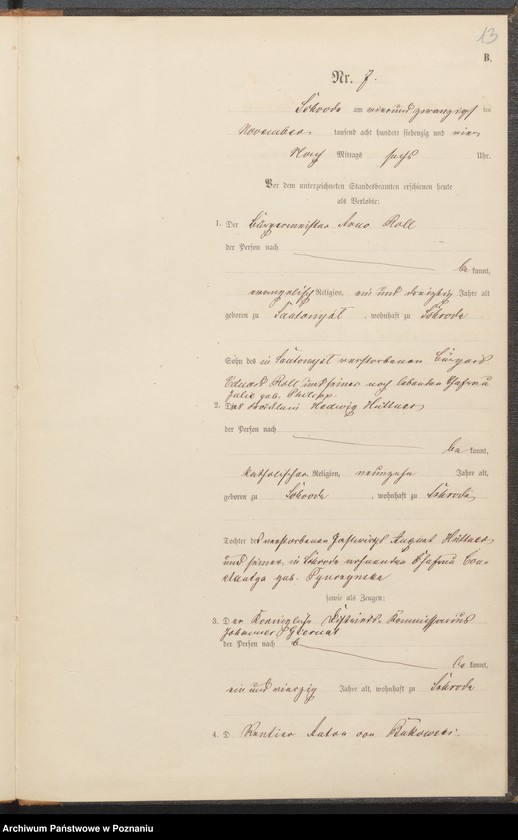 13
B.
Nr. 7.
Schroda am vierundzwanzigsten
November tausend acht hundert siebenzig und vier
Nach Mittags sechs Uhr.
Vor dem unterzeichneten Standesbeamten erschienen heute
als Verlobte:
1. Der Bürgermeister Arno Roll
der Person nach
bekannt,
evangelischer Religion, ein und dreißig Jahre alt
geboren zu Santomysl, wohnhaft zu Schroda
Sohn des in Santomysl verstorbenen Bürgers
Eduard Roll und seiner noch lebenden Ehefrau
Julie geb. Philipp.
2. Das Fräulein Hedwig Hüttner
der Person nach
bekannt,
katholischer Religion, neunzehn Jahre alt,
geboren zu Schroda, wohnhaft zu Schroda,
Tochter des verstorbenen Gastwirths August Hüttner
und seiner, in Schroda wohnenden Ehefrau
geb.
sowie als Zeugen:
3. Der Koenigliche Distrikts-Kommissarius
Johannes
der Person nach
bekannt,
ein und vierzig Jahre alt, wohnhaft zu Schroda
4. D Rentier Anton von
Archiwum Państwowe w Poznaniu